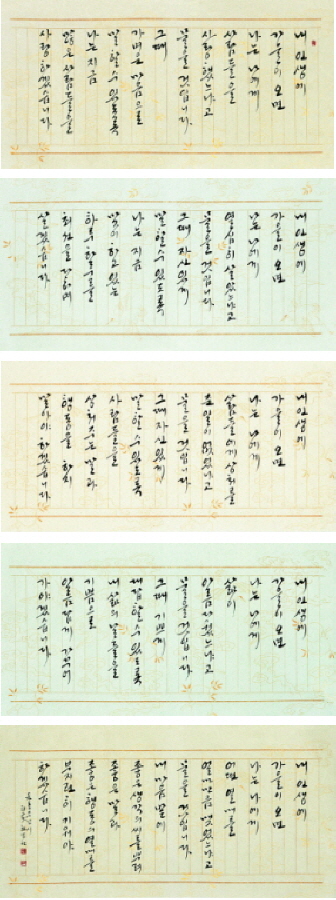 내 인생에
가을이 오면
나는 나에게
사람들을
사랑했느냐고
물을 것입니다.
그때
가벼운 마음으로
말할 수 있도록
나는 지금
많은 사람들을
사랑하겠습니다.
내 인생에
가을이 오면
나는 나에게
열심히 살았느냐고
물을 것입니다.
그때 자신있게
말할 수 있도록
나는 지금
맞이하고 있는
하루하루를
최선을 다하며
살겠습니다.
내 인생에
가을이 오면
나는 나에게
사람들에게 상처를
준 일이 없었냐고
물을 것입니다.
그때 자신있게
말할 수 있도록
사람들을
상처주는 말과
행동을 하지
말아야 하겠습니다.
내 인생에
가을이 오면
나는 나에게
삶이
아름다웠느냐고
물을 것입니다.
그때 기쁘게
대답할 수 있도록
내 삶의 날들을
기쁨으로
아름답게 가꾸어
가야겠습니다.
내 인생에
가을이 오면
나는 나에게
어떤 열매를
얼마만큼 맺었느냐고
물을 것입니다.
내 마음 밭에
좋은 생각의 씨를 뿌려
좋은 말과
좋은 행동의 열매를
부지런히 키워야
하겠습니다.